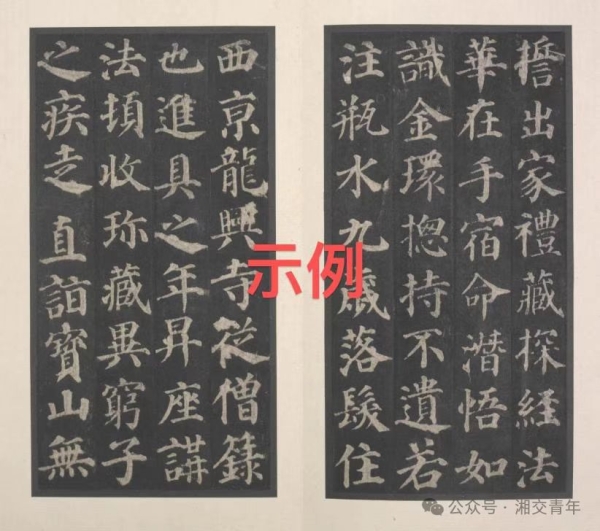 擔出家禮藏探經法
華在手宿命潛悟如
識金環揔持不遺若
注瓶水九歲落髮住
西京龍興寺從僧籙
也進具之年昇座講
法頓收珎藏異窮子
之疾走直詣寶山無
示例
公众号·湘交青年